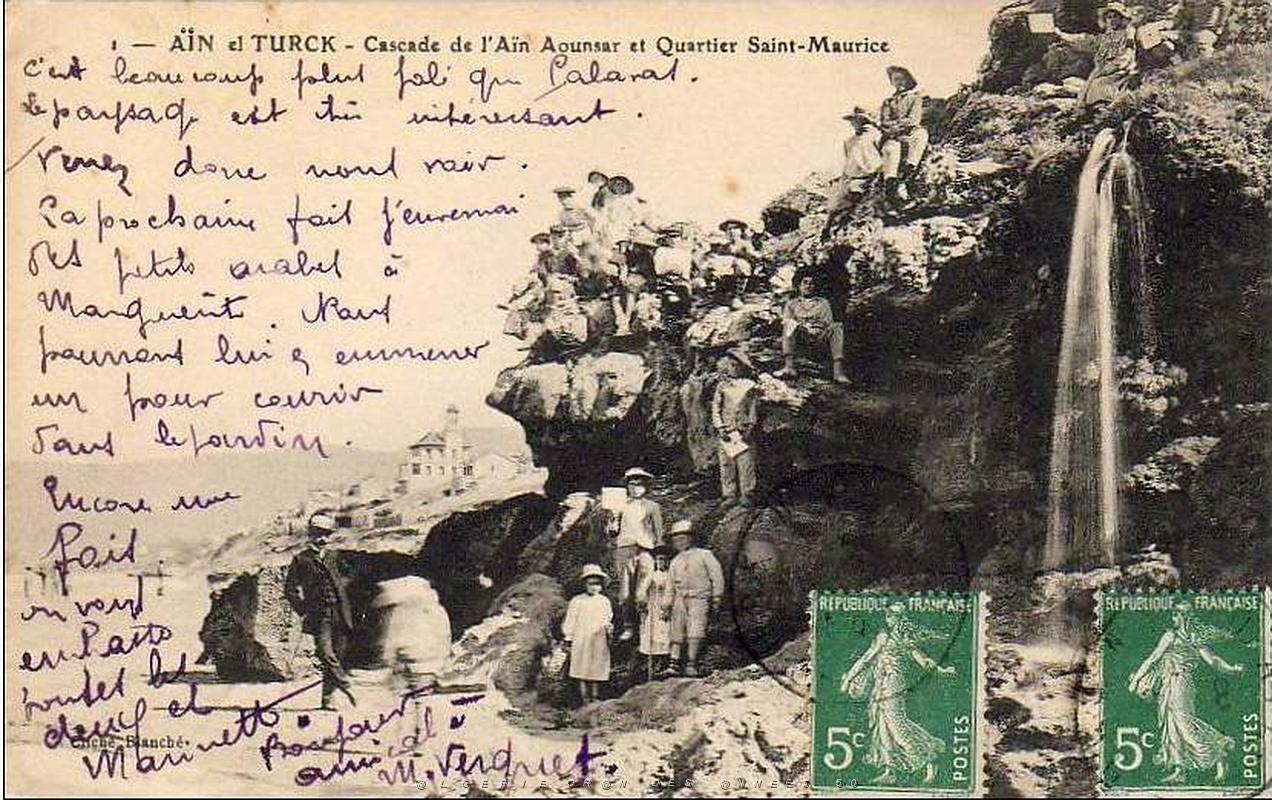 1 — AÏN el TURCK - Cascade de l'Aïn Aounsar et Quartier Saint-Maurice
C'est beaucoup plus joli que Palavas.
Le paysage est très intéressant.
Venez donc nous voir.
La prochaine fois j'enverrai
des petits arabes à
Marguerite. Nous
pourrons lui en emmener
un pour courir
dans le jardin.
Encore une
fois
on vous
embrasse
toutes les
deux et
Marinette.
Bonjour
amical à
M. Vergnet.
Cliché Blanché
RÉPUBLIQUE FRANÇAISE
5c POSTES
RÉPUBLIQUE FRANÇAISE
5c POSTES